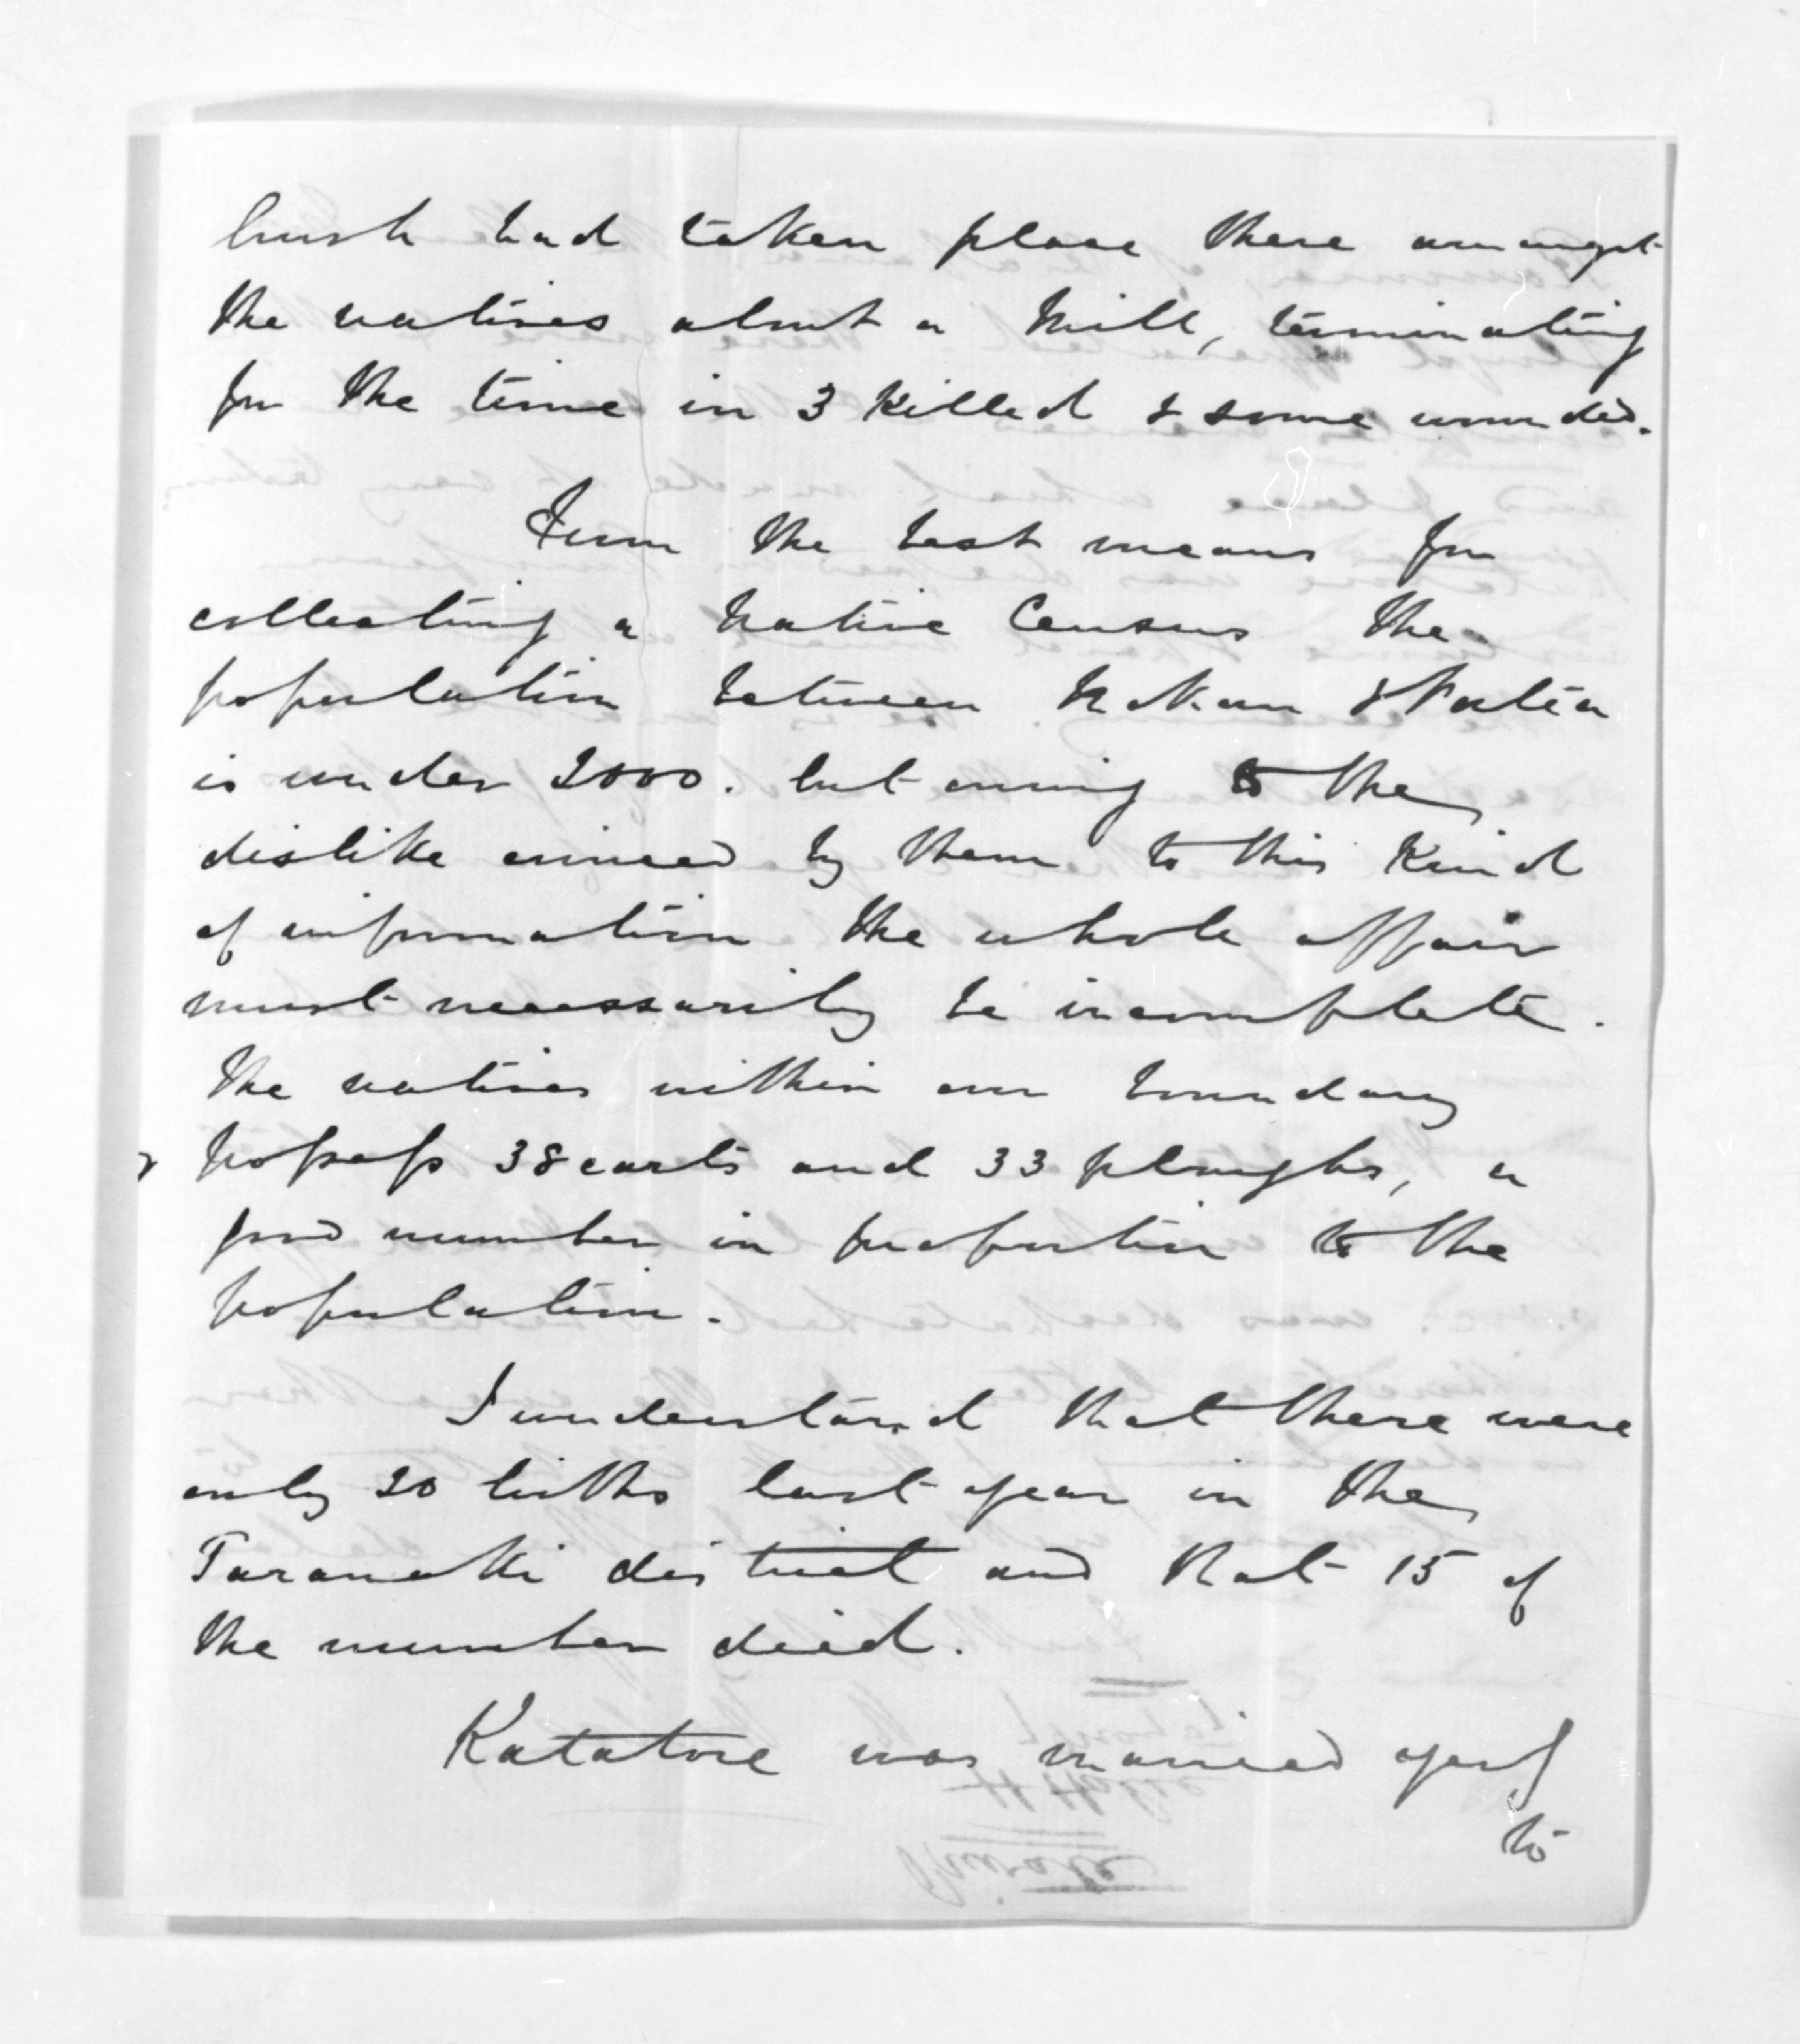 brush had taken place there amongst
the natives about a Mill, terminating
for the time in 3 killed & some wounded.
From the best means for
collecting a Native Census the
population between Mokau & Patea
is under 2000. but owing to the
dislike evinced by them to this kind
of information the whole affair
must necessarily be incomplete.
The natives within our boundary
possess 38 carts and 33 ploughs, a
good number in proportion to the
population.
I understand that there were
only 20 births last year in the
Taranaki district and that 15 of
the number died.
Katatore was married yesty
to